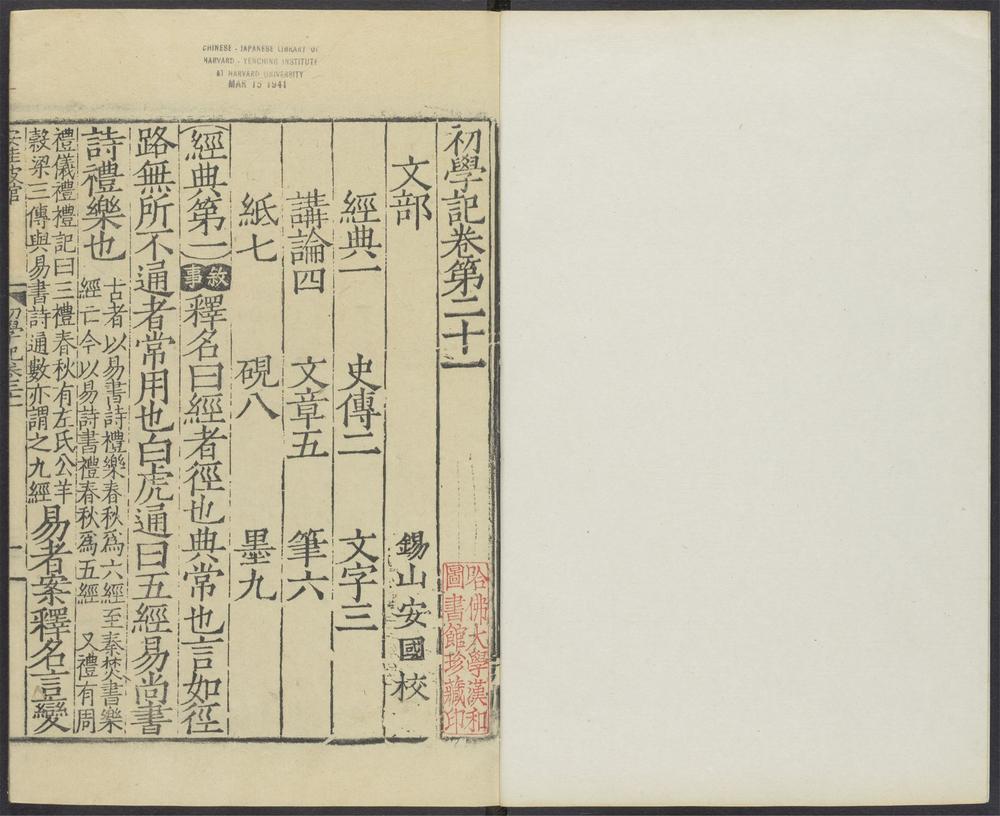 CHINESE - JAPANESE LIBRARY OF
HARVARD - YENCHING INSTITUTE
AT HARVARD UNIVERSITY
MAR 15 1941
初學記卷第二十一
哈佛大學漢和
圖書館珍藏印
文部
錫山安國校
經典一 史傳二 文字三
講論四 文章五 筆六
紙七 硯八 墨九
經典第一 敘事 釋名曰經者徑也典常也言如徑
路無所不通者常用也白虎通曰五經易尚書
詩禮樂也
古者以易書詩禮樂春秋為六經至秦焚書樂
經亡今以易詩書禮春秋為五經 又禮有周
禮儀禮禮記曰三禮春秋有左氏公羊
穀梁三傳與易書詩通數亦謂之九經
易者案釋名言變
安桂坡館
初學記卷二十一
一